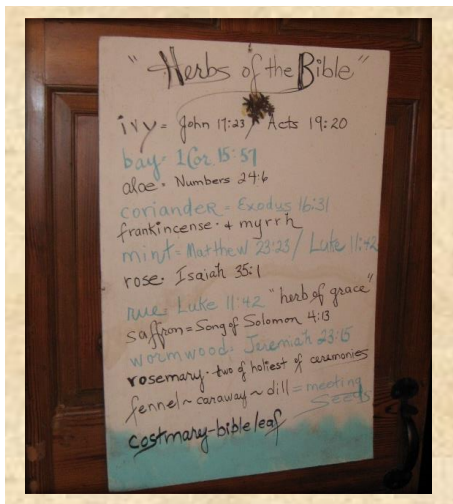 "Herbs of the Bible"
ivy = John 17:23 / Acts 19:20
bay = 1Cor 15:57
aloe = Numbers 24:6
coriander = Exodus 16:31
frankincense + myrrh
mint = Matthew 23:23 / Luke 11:42
rose = Isaiah 35:1
rue = Luke 11:42 "herb of grace"
saffron = Song of Solomon 4:13
wormwood = Jeremiah 23:15
rosemary - two of holiest of ceremonies
fennel ~ caraway ~ dill = meeting
SEEdS
costmary-bible leaf